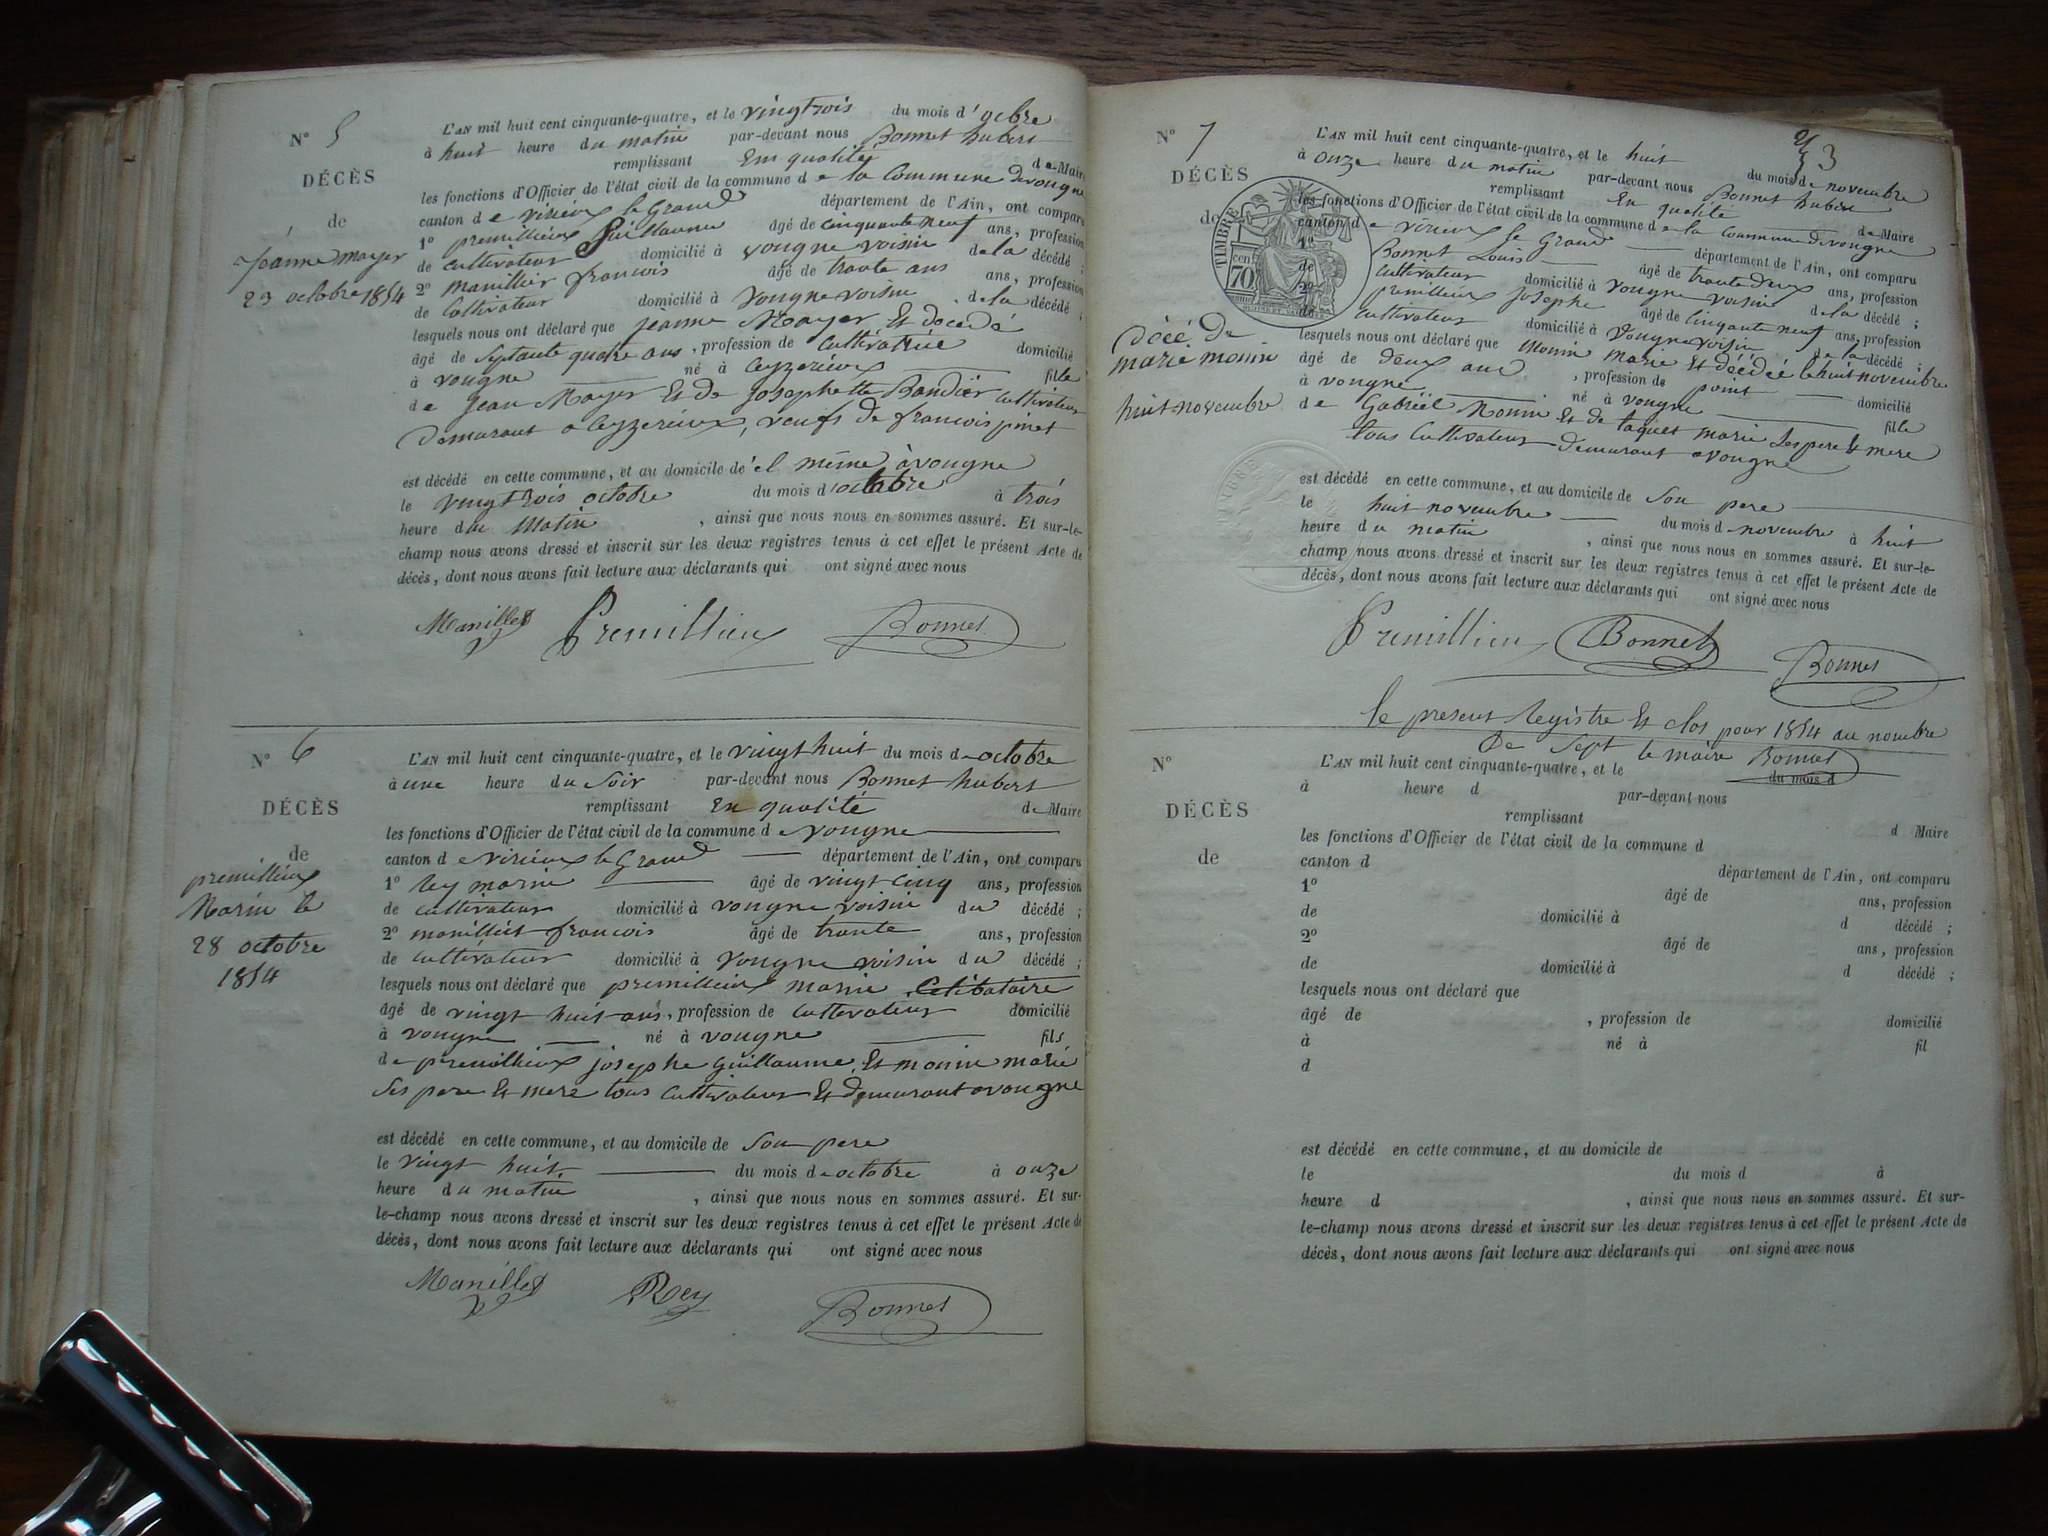 N° 5
DÉCÈS
de
Jeanne mayer
23 octobre 1854
L'AN mil huit cent cinquante-quatre, et le vingtrois du mois d'octbre
à huit heure du matin par-devant nous Bonnet hubert
remplissant En qualité de Maire
les fonctions d'Officier de l'état civil de la commune de la Commune de vougne
canton de virieux le Grand département de l'Ain, ont comparu
1° premillieux Guillaume âgé de cinquante neuf ans, profession
de cultivateur domicilié à vougne voisin de la décédé ;
2° manillier francois âgé de trante ans ans, profession
de Cultivateur domicilié à vougne voisin de la décédé ;
lesquels nous ont déclaré que jeanne Mayer Et décédé
âgé de septante quatre ans, profession de cultivatrice domicilié
à vougne né à ceyzerieux fille
de jean Mayer Et de josephette Bandier cultivateur
demurant a Ceyzerieux, veufs de francois pinet
est décédé en cette commune, et au domicile de el même à vougne
le vingtrois octobre du mois d'octobre à trois
heure du Matin , ainsi que nous nous en sommes assuré. Et sur-le-
champ nous avons dressé et inscrit sur les deux registres tenus à cet effet le présent Acte de
décès, dont nous avons fait lecture aux déclarants qui ont signé avec nous
Manillet Premillieux Bonnet
N° 6
DÉCÈS
de
premillieux
Marin le
28 octobre
1854
L'AN mil huit cent cinquante-quatre, et le vingt huit du mois de octobre
à une heure du Soir par-devant nous Bonnet hubert
remplissant En qualité de Maire
les fonctions d'Officier de l'état civil de la commune de vougne
canton de virieux le Grand département de l'Ain, ont comparu
1° Rey marin âgé de vingt cinq ans, profession
de cultivateur domicilié à vougne voisin du décédé ;
2° manillict francois âgé de trante ans, profession
de cultivateur domicilié à vougne voisin du décédé ;
lesquels nous ont déclaré que premillieux marin Celibataire
âgé de vingt huit ans, profession de cultivateur domicilié
à vougne né à vougne fils
de premillieux josephe Guillaume Et monin marie
Ses pere Et mere tous cultivateur Et demurant a vougne
est décédé en cette commune, et au domicile de Son pere
le vingt huit du mois de octobre à onze
heure du matin , ainsi que nous nous en sommes assuré. Et sur-
le-champ nous avons dressé et inscrit sur les deux registres tenus à cet effet le présent Acte de
décès, dont nous avons fait lecture aux déclarants qui ont signé avec nous
Manillet Rey Bonnet
53
N° 7
DÉCÈS
de
TIMBRE
70 cen
décé de
marie monin
huit novembre
L'AN mil huit cent cinquante-quatre, et le huit du mois de novembre
à onze heure du matin par-devant nous Bonnet hubert
remplissant En qualité de Maire
les fonctions d'Officier de l'état civil de la commune de la Commune de vougne
canton de virieux le Grand département de l'Ain, ont comparu
1° Bonnet Louis âgé de trante deux ans, profession
de cultivateur domicilié à vougne voisin de la décédé ;
2° premillieux josephe âgé de cinqante neuf ans, profession
de cultivateur domicilié à vougne voisin de la décédé ;
lesquels nous ont déclaré que Monin Marie Et décédé le huit novembre
âgé de deux ans , profession de point domicilié
à vougne né à vougne fille
de Gabriel Monin Et de taquet marie Ses pere Et mere
tous Cultivateur demurant a vougne
est décédé en cette commune, et au domicile de Son pere
le huit novembre du mois d novembre à huit
heure du matin , ainsi que nous nous en sommes assuré. Et sur-le-
champ nous avons dressé et inscrit sur les deux registres tenus à cet effet le présent Acte de
décès, dont nous avons fait lecture aux déclarants qui ont signé avec nous
Premillieux Bonnet
Bonnet
le present Registre Et clos pour 1854 au nombre
De Sept le maire Bonnet
N°
DÉCÈS
de
L'AN mil huit cent cinquante-quatre, et le du mois d
à heure d par-devant nous
remplissant d Maire
les fonctions d'Officier de l'état civil de la commune d
canton d département de l'Ain, ont comparu
1° âgé de ans, profession
de domicilié à d décédé ;
2° âgé de ans, profession
de domicilié à d décédé ;
lesquels nous ont déclaré que
âgé de , profession de domicilié
à né à fil
d
est décédé en cette commune, et au domicile de
le du mois d à
heure d , ainsi que nous nous en sommes assuré. Et sur-
le-champ nous avons dressé et inscrit sur les deux registres tenus à cet effet le présent Acte de
décès, dont nous avons fait lecture aux déclarants qui ont signé avec nous